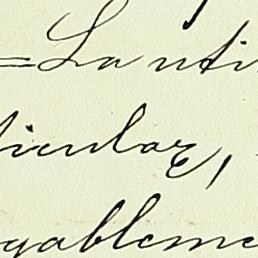 =La uti
ticular,
gableme